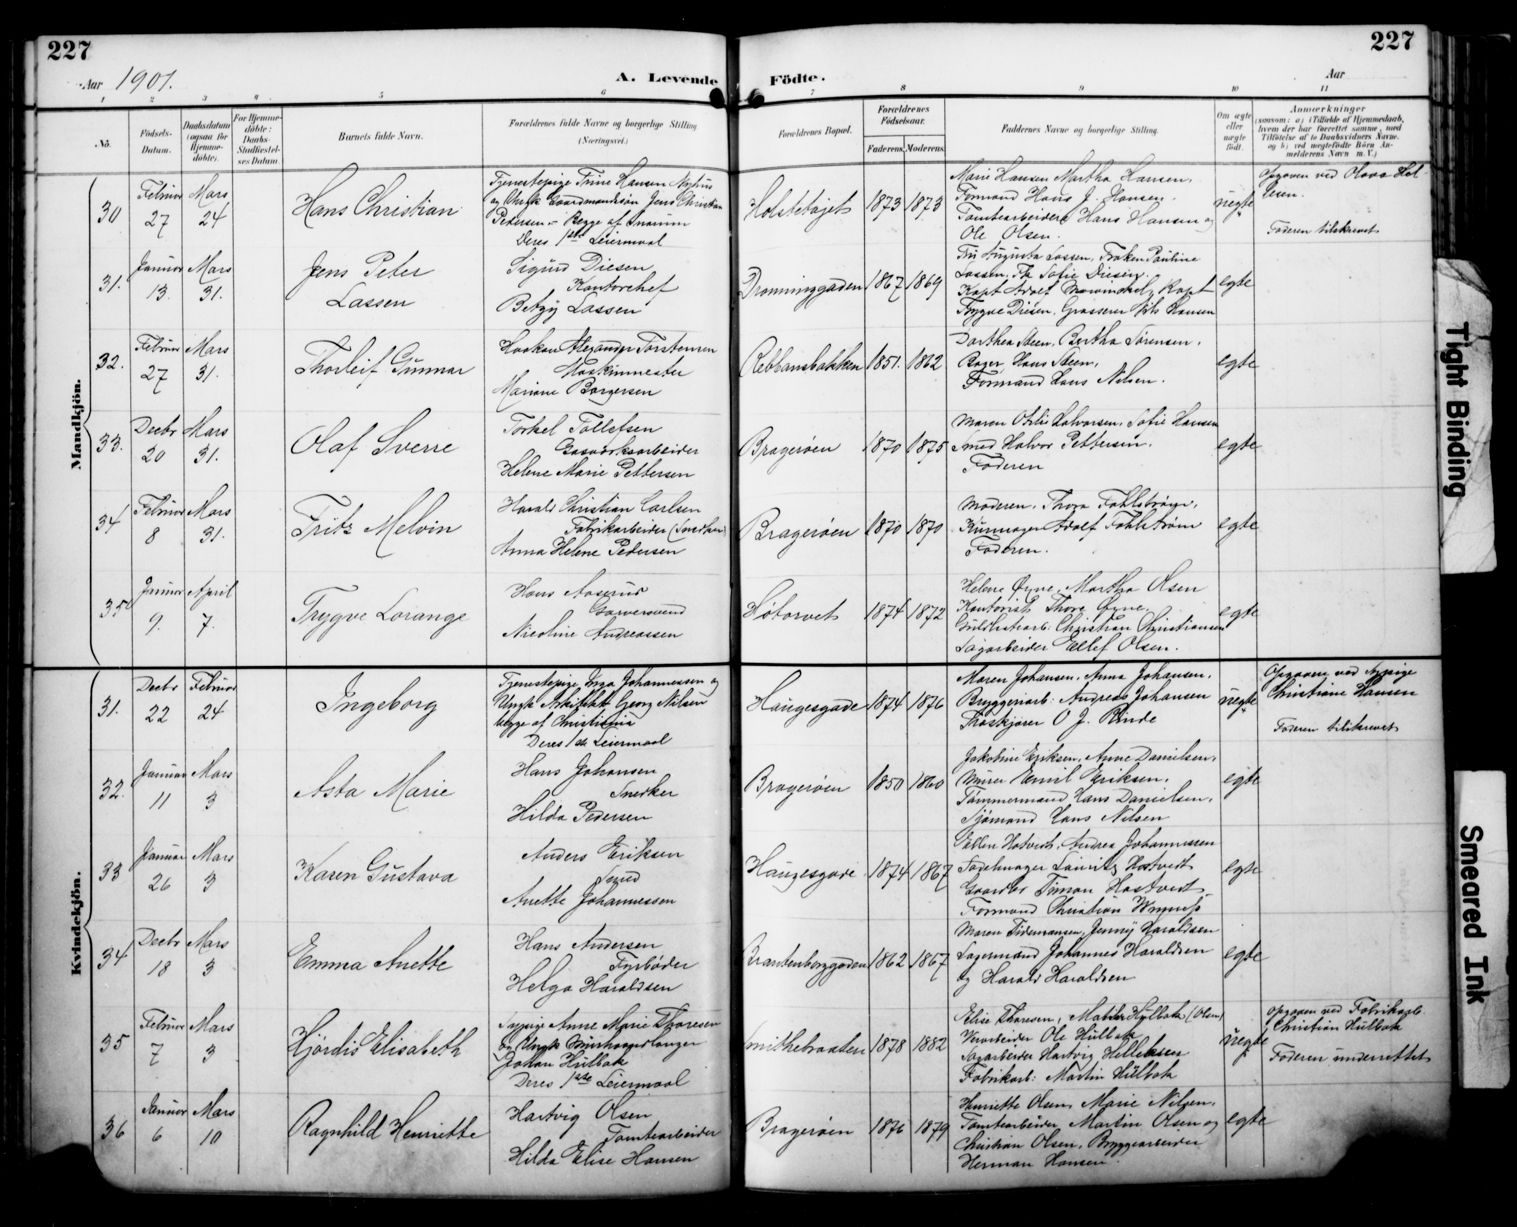 227
227
Aar 1901.
A. Levende Födte.
Aar
1 2 3 4 5 6 7 8 9 10 11
No.
Födsels-Datum.
Daabsdatum (ogsaa for Hjemme-döbte).
For Hjemme-döbte: Daabs-Stadfæstel-ses Datum.
Barnets fulde Navn.
Forældrenes fulde Navne og borgerlige Stilling (Næringsvei.)
Forældrenes Bopæl.
Forældrenes Födselsaar.
Faderens. Moderens.
Faddernes Navne og borgerlige Stilling.
Om ægte eller uægte födt.
Anmærkninger
Mandkjön.
30
Februar 27
Mars 24
Hans Christian
Tjenestepige Trine Hansen
og Ungk Gaardmandssön Jens Christian
Pedersen - Begge af
Deres 1ste Leiermaal
1873 1873
Marie Hansen Martha Hansen.
Formand Hans J. Hansen.
Tomtearbeider Hans Hansen og
Ole Olsen.
uegte
Opgaven ved Olava
Faderen tilskrevet
31.
Januar 13.
Mars 31.
Jens Peter
Lassen
Sigurd Diesen
Kontorchef
Betzy Lassen
Dronninggaden
1867 1869
Fru Augusta Lassen, Fröken Pauline
Lassen, Fr Sofie Diesen.
Kapt Adolf Kapt
Trygve Diesen, Grosserer Nils Hansen
egte
32.
Februar 27
Mars 31.
Thorleif Gunnar
Haakon Alexander Torstensen
Maskinmester
Mariane Borgersen
Rebbansbakken
1851. 1862
Dorthea Steen, Bertha Sörensen,
Bager Hans Steen,
Formand Hans Nilsen.
egte
33.
Decbr 20
Mars 31.
Olaf Sverre
Torkel Tollefsen
Gasværksarbeider
Helene Marie Pettersen
Brageröen
1870 1875
Maren Otilie Halvorsen, Sofie Hansen
Smed Halvor Pettersen.
Faderen
egte
34
Februar 8
Mars 31.
Fritz Melvin
Harald Christian Carlsen
Fabrikarbeider (Snedker)
Anna Helene Pedersen
Brageröen
1870 1870
Moderen, Thora Fahlström,
Buntmager Adolf Fahlström
Faderen.
egte
35
Januar 9.
April 7.
Trygve Lorange
Hans Aaserud
Garversvend
Nicoline Andreassen
Hötorvet
1874 1872
Helene Öyne, Martha Olsen
Kontorist Thora Öyne,
Christian Christiansen
Sagarbeider Ellef Olsen.
egte
Kvindekjön.
31.
Decbr 22
Februar 24
Ingeborg
Tjenestepige Inga Johannessen og
Ungk Arkitekt Georg Nilsen
begge af Christiania
Deres 1ste Leiermaal
Haugesgade
1874 1876
Maren Johansen, Anna Johansen,
Bryggeriarb. Andreas Johansen
O J. Rinde
uegte
Opgaven ved
Christiane Hansen
Faderen tilskrevet
32.
Januar 11
Mars 3
Asta Marie
Hans Johansen
Snedker
Hilda Pedersen
Brageröen
1850 1860
Jakobine Eriksen, Anne Danielsen,
Murer Emil Eriksen,
Tömmermand Hans Danielsen,
Sjömand Hans Nilsen
egte
33
Januar 26
Mars 3
Karen Gustava
Anders Eriksen
Smed
Anette Johannessen
Haugesgade
1874 1867
Ellen Hotvedt, Andrea Johannessen
Sadelmager Laurits Hotvedt
Gaardbr Simon Hostvedt
Formand Christian
egte
34
Decbr 18
Mars 3
Emma Anette
Hans Andersen
Fyrböder
Helga Haraldsen
Brantenborggaden
1862 1867
Maren Tidemansen, Jenny Haraldsen
Lagermand Johannes Haraldsen
og Harald Haraldsen
egte
35
Februar 7
Mars 3
Hjördis Elisabeth
Anne Marie Thoresen
og Ungk
Johan Hulbak
Deres 1ste Leiermaal
Smithebraaten
1878 1882
Elise Thoresen, Mathea Hulbak (Olsen)
Ole Hulbak
Sagarbeider Hartvig Helleksen
Fabrikarb: Martin Hulbak
uegte
Opgaven ved Fabrikarb.
Christian Hulbak
Faderen underrettet
36
Januar 6
Mars 10
Ragnhild Henriette
Hartvig Olsen
Tomtearbeider
Hilda Elise Hansen
Brageröen
1876 1879
Henriette Olsen, Marie Nilsen,
Tomtearbeider Martin Olsen og
Christian Olsen, Bryggearbeider
Herman Hansen.
egte
Tight Binding
Smeared Ink